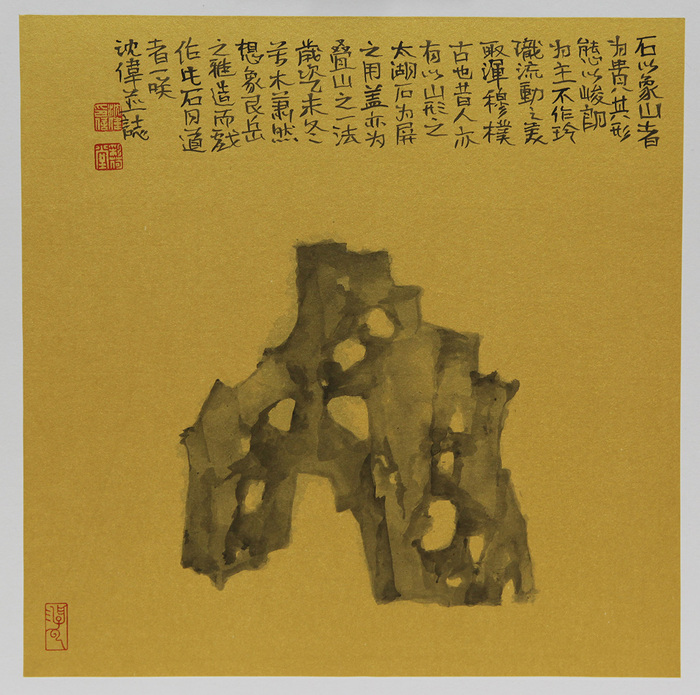 石以象山者
为貴其形
態以峻朗
为主不作玲
瓏流動之美
取渾穆樸
古也昔人亦
有以山形之
太湖石为屏
之用盖亦为
叠山之一法
歲次乙未冬
木蕭然
想象艮岳
之雅造而戲
作此石同道
者一咲
沈偉並誌